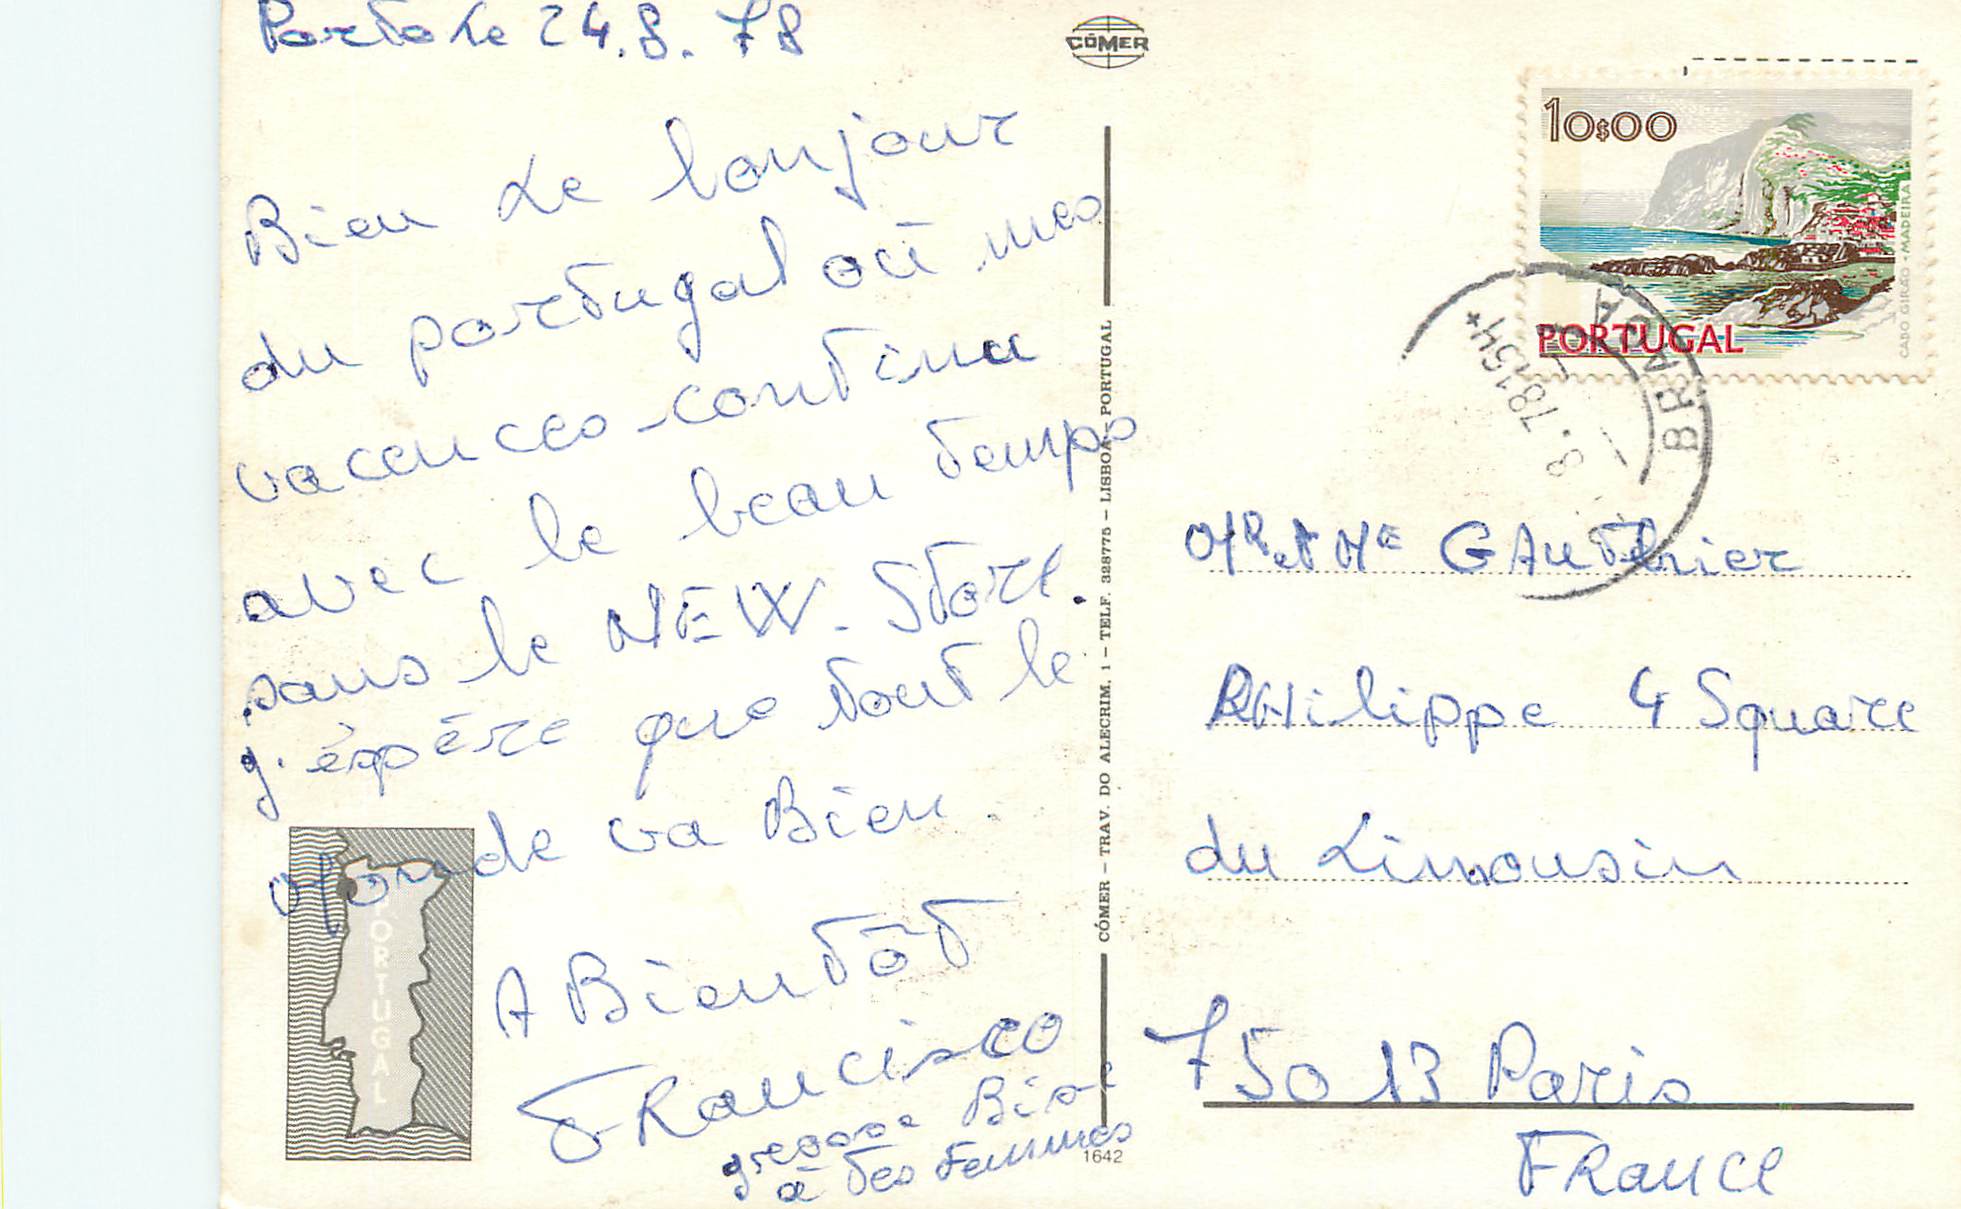 Porto le 24.8.78
Bien le bonjour
du portugal où mes
vacances continu
avec le beau temps
sans le NEW. Store.
j'éspère que tout le
Monde va Bien.
A Bientôt
FRancisco
grosse Bise
à tes femmes
CÓMER
CÓMER – TRAV. DO ALECRIM, 1 – TELF. 328775 – LISBOA – PORTUGAL
1642
PORTUGAL
10$00
PORTUGAL
CABO GIRÃO - MADEIRA
BRAGA
8.78 15H
MR et Me GAuthier
PHilippe 4 Square
du Limousin
75013 Paris
FRance